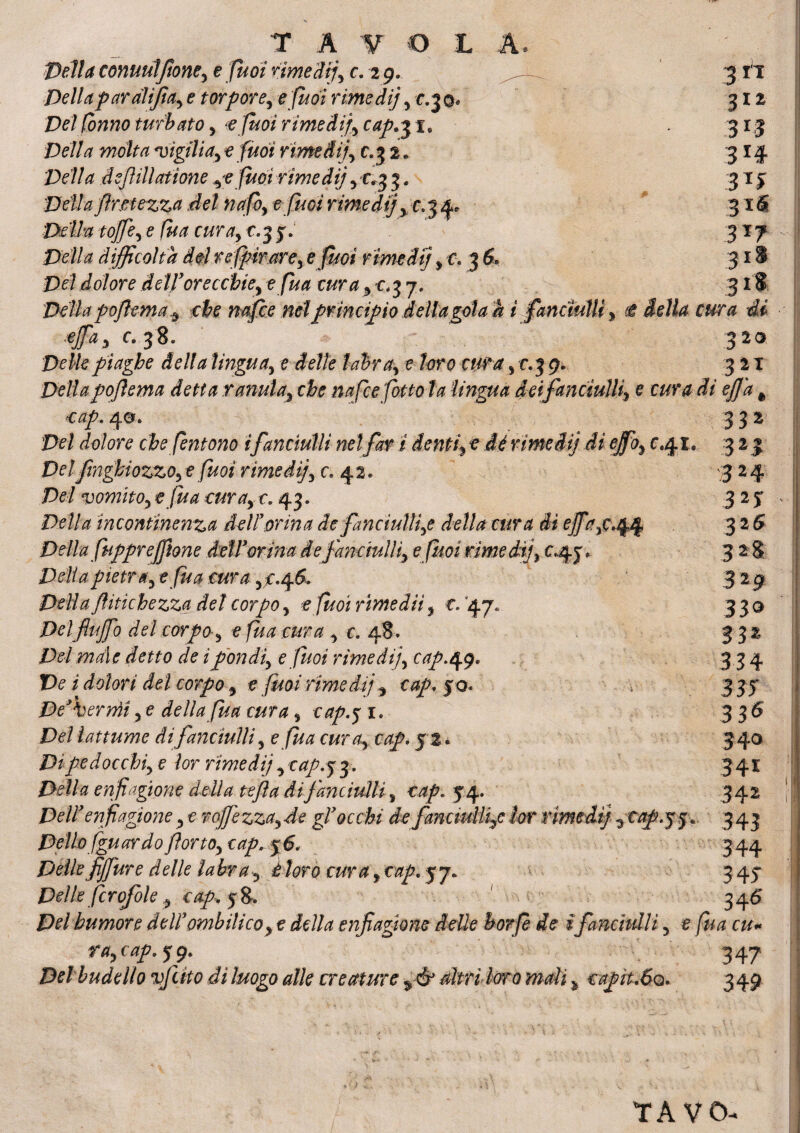 TAVOLA.
Della conuulſione, e ſuoi rimedij, c. 29. 311
Della paraliſia, e torpore, e ſuoi rimedij, c.30. 312
Del ſonno turbato, e ſuoi rimedij, cap.31. 313
Della molta vigilia, e ſuoi rimedij, c.32. 314
Della deſtillatione, e ſuoi rimedij, c.33. 315
Della ſtretezza del naſo, e ſuoi rimedij, c.34. 316
Della toſſe, e ſua cura, c.35. 317
Della difficoltà del reſpirare, e ſuoi rimedij, c. 36. 318
Del dolore dell'orecchie, e ſua cura, c.37. 318
Della poſtema, che naſce nel principio della gola à i fanciulli, & della cura di
eſſa, c. 38. 320
Delle piaghe della lingua, e delle labra, e loro cura, c.39. 321
Della poſtema detta ranula, che naſce ſotto la lingua dei fanciulli, e cura di eſſa,
cap. 40. 332
Del dolore che ſentono i fanciulli nel far i denti, e dé rimedij di eſſo, c.41. 323
Del ſinghiozzo, e ſuoi rimedij, c. 42. 324
Del vomito, e ſua cura, c. 43. 325
Della incontinenza dell'orina de fanciulli, e della cura di eſſa, c.44 326
Della ſuppreſſione dell'orina de fanciulli, e ſuoi rimedij, c.45. 328
Della pietra, e ſua cura, c.46. 329
Della ſtitichezza del corpo, e ſuoi rimedii, c. 47. 330
Del fluſſo del corpo, e ſua cura, c. 48. 332
Del male detto de i pondi, e ſuoi rimedij, cap.49. 334
De i dolori del corpo, e ſuoi rimedij, cap. 50. 335
De' vermi, e della ſua cura, cap.51. 336
Del lattume di fanciulli, e ſua cura, cap. 52. 340
Di pedocchi, e lor rimedij, cap.53. 341
Della enfiagione della teſta di fanciulli, cap. 54. 342
Dell'enfiagione, e roſſezza, de gl'occhi de fanciulli, e lor rimedij, cap.55. 343
Dello ſguardo ſtorto, cap. 56. 344
Delle fiſſure delle labra, è loro cura, cap. 57. 345
Delle ſcrofole, cap. 58. 346
Del humore dell'ombilico, e della enfiagione delle borſe de i fanciulli, e ſua cu-
ra, cap. 59. 347
Del budello vſcito di luogo alle creature, & altri loro mali, capit.60. 349
TAVO-